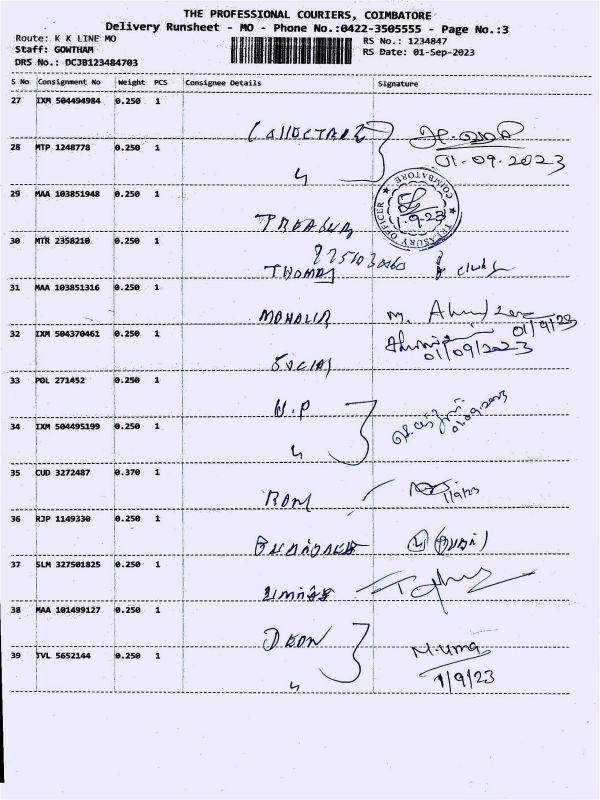 THE PROFESSIONAL COURIERS, COIMBATORE
Delivery Runsheet - MO - Phone No.:0422-3505555 - Page No.:3
Route: K K LINE MO
RS No.: 1234847
Staff: GOWTHAM
RS Date: 01-Sep-2023
DRS No.: DCJB123484703
S No Consignment No Weight PCS Consignee Details Signature
27 IXM 504494984 0.250 1
28 MTP 1248778 0.250 1
01.09.2023
29 MAA 103851948 0.250 1
COIMBATORE
1.9.23
TREASURY OFFICER
30 MTR 2358210 0.250 1
THOMAS
31 MAA 103851316 0.250 1
M.
01/9/23
32 IXM 504370461 0.250 1
01/09/2023
SOCIAL
33 POL 271452 0.250 1
H.P
34 IXM 504495199 0.250 1
35 CUD 3272487 0.370 1
1/9/23
36 RJP 1149330 0.250 1
37 SLM 327501825 0.250 1
38 MAA 101499127 0.250 1
DEAN
M.uma
39 TVL 5652144 0.250 1
1/9/23